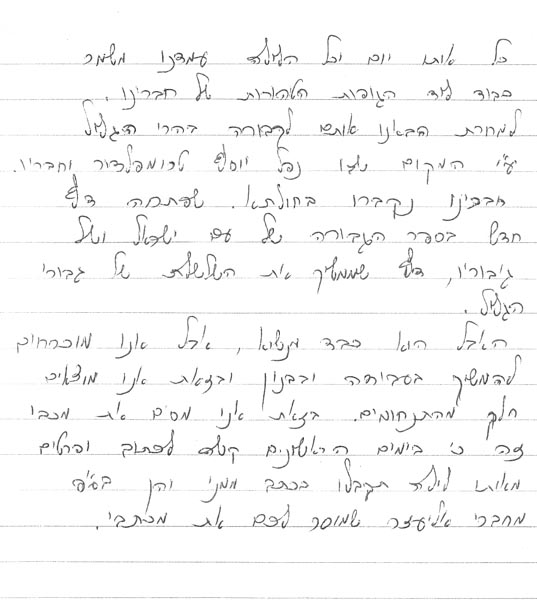 כל אותו יום וכל הלילה עמדנו משמר
כבוד ליד הגופות הטהורות של חברינו.
למחרת הבאנו אותם לקבורה בהרי הגליל
ע"י המקום שבו נפל יוסף טרומפלדור וחבריו.
חברינו נקברו בחולתא. שפתחה דף
חדש בספר הגבורה של עם ישראל ושל
גיבוריו, דף שממשיך את השלשלת של גבורי
הגליל.
האבל הוא כבד מנשוא, אבל אנו מוכרחים
להמשיך בעבודה ובבנין ובזאת אנו מוצאים
חלק מהתנחומים. בזאת אני מסים את מכתבי
זה כי בימים הראשונים קשה לכתוב ופרטים
מאותו לילה תקבלו בכתב ממני והן בע"פ
מחברי אליעזר שמוסר לכם את מכתבי.